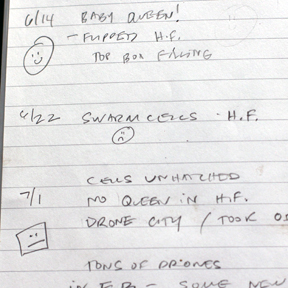 6/14 BABY QUEEN!
- FLIPPED H.F.
TOP BOX FILLING
6/22 SWARM CELLS · H.F.
CELLS UNHATCHED
7/1 NO QUEEN IN H.F.
DRONE CITY / TOOK
TONS OF DRONES
IN F.B. - SOME NEW